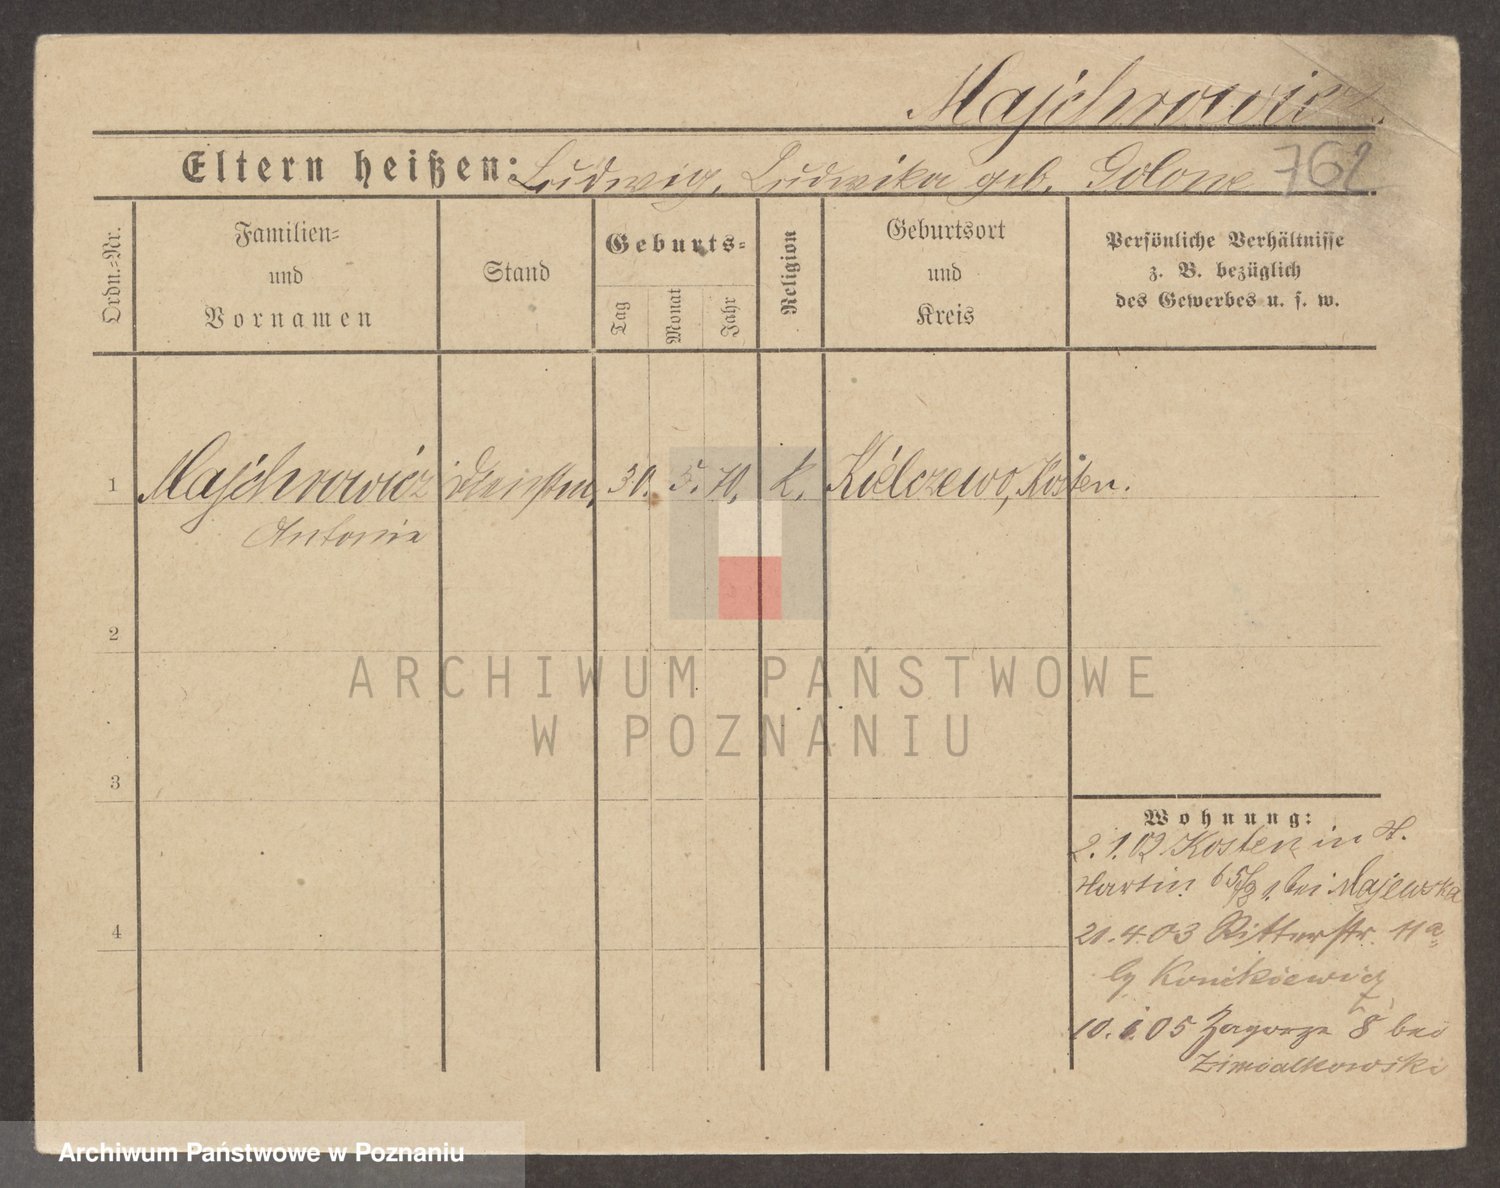 Majchrowicz.
Eltern heißen: Ludwig, Ludwika geb. Golone
762
Ordn.=Nr.
Familien=
und
Vornamen
Stand
Geburts=
Tag
Monat
Jahr
Religion
Geburtsort
und
Kreis
Persönliche Verhältnisse
z. B. bezüglich
des Gewerbes u. s. w.
1 Majchrowicz 30. 5. 70. k. Kiélczewo, Kosten.
Antonie
2
3
4
ARCHIWUM PAŃSTWOWE
W POZNANIU
Wohnung:
2. 1. 02 Kosten in St.
Martin 65/8 1. bei Majewska
21. 4. 03 Ritterstr. 11a
by Konikiewicz
10. 1. 05 Zagorze 8 bei
Zimialkowski
Archiwum Państwowe w Poznaniu